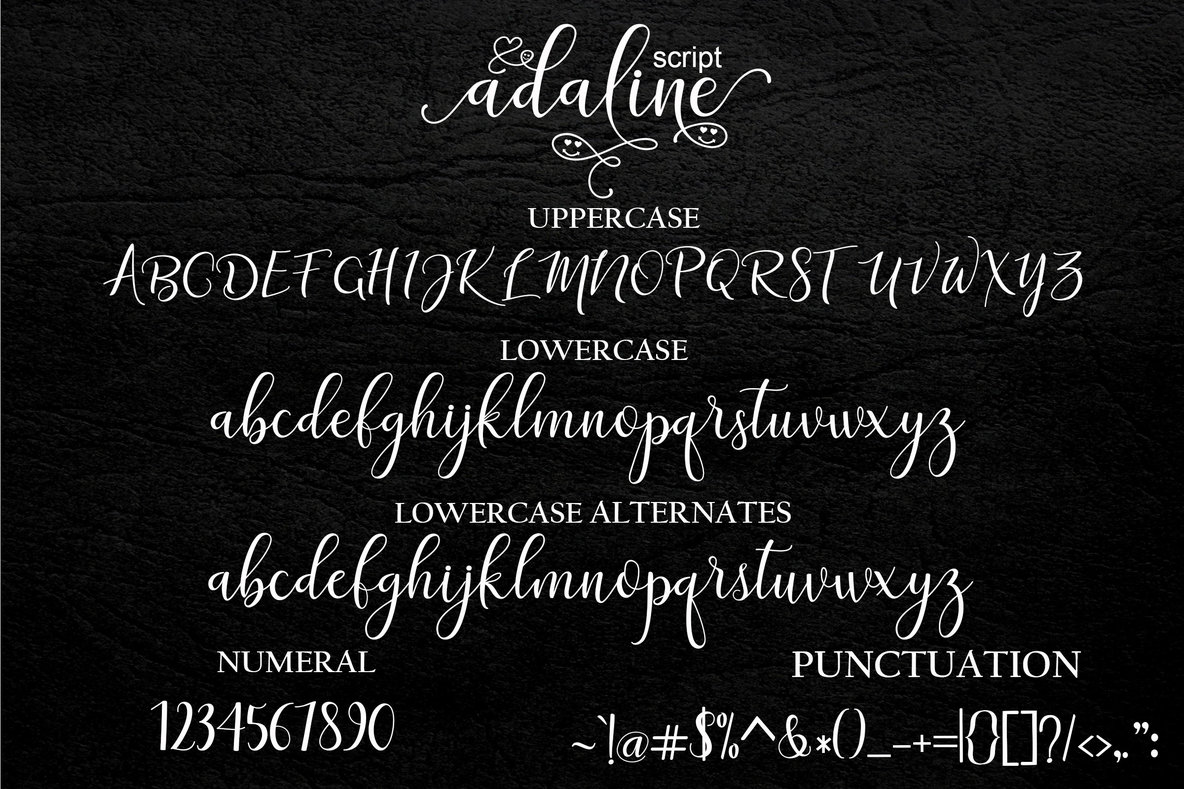 script
adaline
UPPERCASE
ABCDEFGHIJKLMNOPQRSTUVWXYZ
LOWERCASE
abcdefghijklmnopqrstuvwxyz
LOWERCASE ALTERNATES
abcdefghijklmnopqrstuvwxyz
NUMERAL
1234567890
PUNCTUATION
~`!@#$%^&*()_-+=|{}[]?/<>,.”: